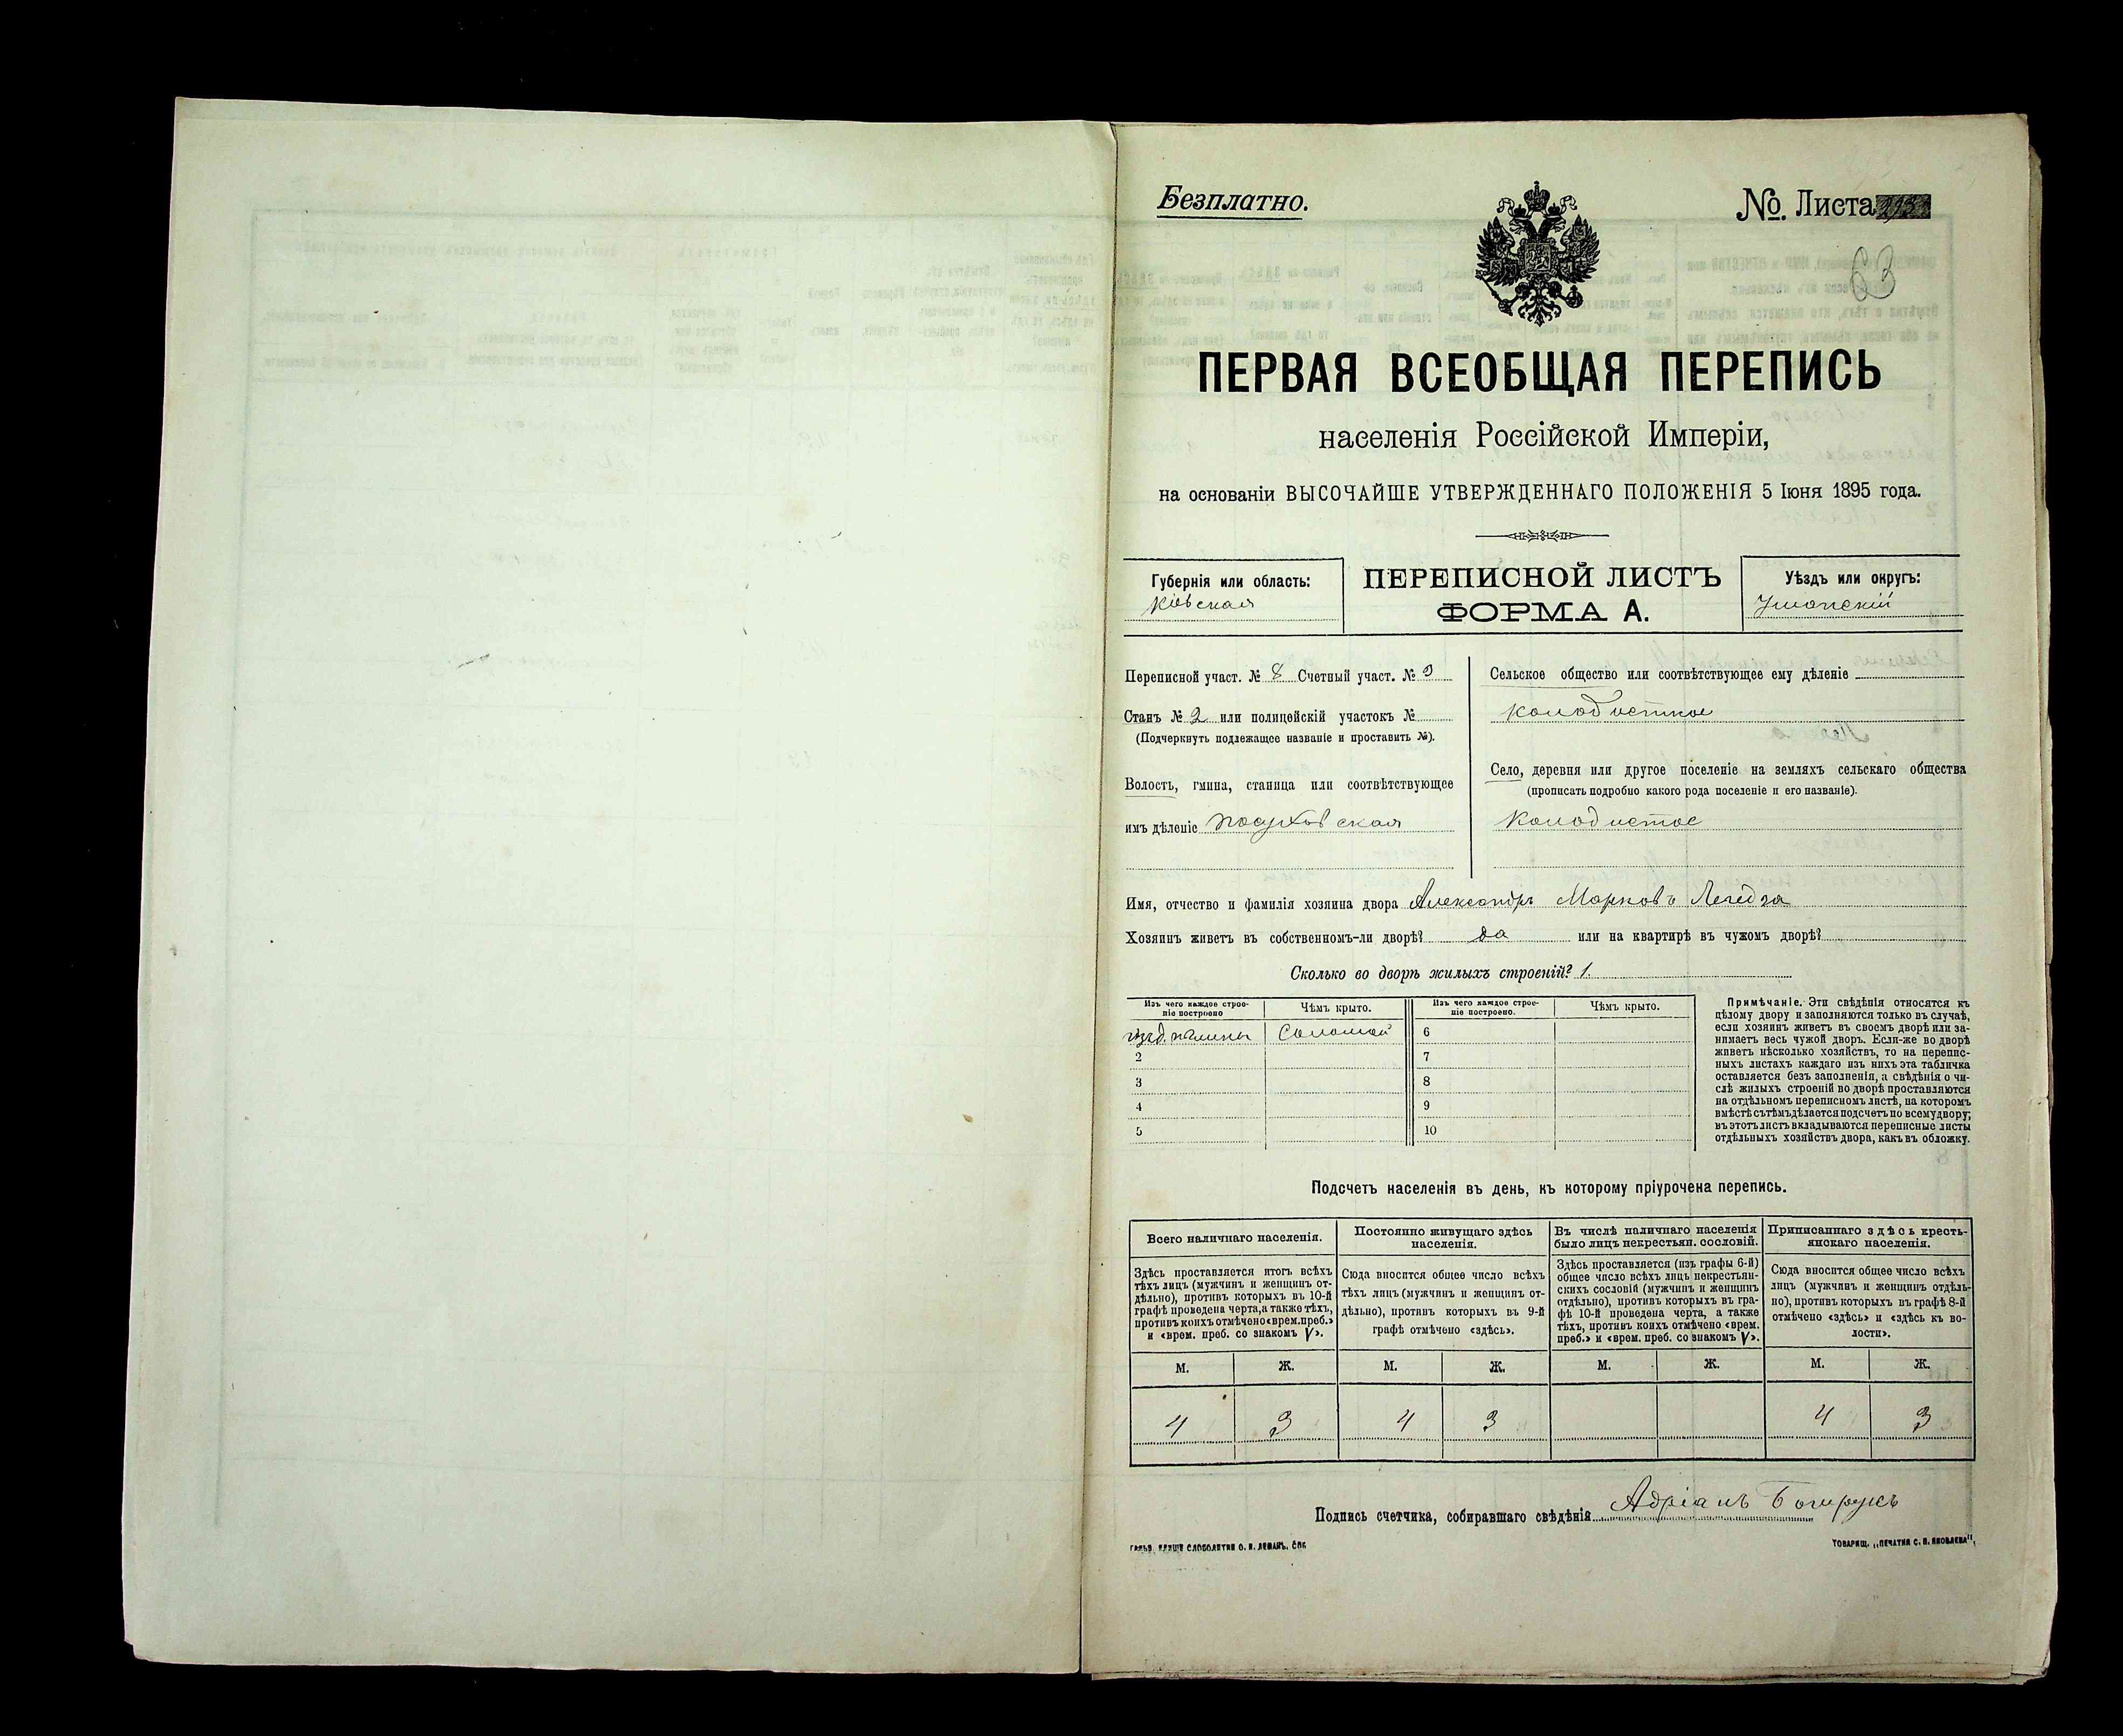 Безплатно.
№ Листа
63
ПЕРВАЯ ВСЕОБЩАЯ ПЕРЕПИСЬ
населенія Россійской Имперіи,
на основаніи ВЫСОЧАЙШЕ УТВЕРЖДЕННАГО ПОЛОЖЕНІЯ 5 Іюня 1895 года.
Губернія или область:
Кіевская
ПЕРЕПИСНОЙ ЛИСТЪ
ФОРМА А.
Уѣздъ или округъ:
Уманскій
Переписной участ. № 8 Счетный участ. № 9
Станъ № 2 или полицейскій участокъ №
(Подчеркнуть подлежащее названіе и проставить №).
Волость, гмина, станица или соотвѣтствующее
имъ дѣленіе
Сельское общество или соотвѣтствующее ему дѣленіе
Колодистое
Село, деревня или другое поселеніе на земляхъ сельскаго общества
(прописать подробно какого рода поселеніе и его названіе).
Колодистое
Имя, отчество и фамилія хозяина двора Александръ Марковъ Легедза
Хозяинъ живетъ въ собственномъ-ли дворѣ? да или на квартирѣ въ чужомъ дворѣ?
Сколько во дворѣ жилыхъ строеній? 1.
Изъ чего каждое строе-
ніе построено
Чѣмъ крыто.
Изъ чего каждое строе-
ніе построено.
Чѣмъ крыто.
Соломой
6
2
7
3
8
4
9
5
10
Примѣчаніе. Эти свѣдѣнія относятся къ
цѣлому двору и заполняются только въ случаѣ,
если хозяинъ живетъ въ своемъ дворѣ или за-
нимаетъ весь чужой дворъ. Если-же во дворѣ
живетъ нѣсколько хозяйствъ, то на перепис-
ныхъ листахъ каждаго изъ нихъ эта табличка
оставляется безъ заполненія, а свѣдѣнія о чи-
слѣ жилыхъ строеній во дворѣ проставляются
на отдѣльномъ переписномъ листѣ, на которомъ
вмѣстѣ съ тѣмъ дѣлается подсчетъ по всему двору;
въ этотъ листъ вкладываются переписные листы
отдѣльныхъ хозяйствъ двора, какъ въ обложку.
Подсчетъ населенія въ день, къ которому пріурочена перепись.
Всего наличнаго населенія.
Здѣсь проставляется итогъ всѣхъ
тѣхъ лицъ (мужчинъ и женщинъ от-
дѣльно), противъ которыхъ въ 10-й
графѣ проведена черта, а также тѣхъ,
противъ коихъ отмѣчено «врем. преб.»
и «врем. преб. со знакомъ V».
Постоянно живущаго здѣсь
населенія.
Сюда вносится общее число всѣхъ
тѣхъ лицъ (мужчинъ и женщинъ от-
дѣльно), противъ которыхъ въ 9-й
графѣ отмѣчено «здѣсь».
Въ числѣ наличнаго населенія
было лицъ некрестьян. сословій.
Здѣсь проставляется (изъ графы 6-й)
общее число всѣхъ лицъ некрестьян-
скихъ сословій (мужчинъ и женщинъ
отдѣльно), противъ которыхъ въ гра-
фѣ 10-й проведена черта, а также
тѣхъ, противъ коихъ отмѣчено «врем.
преб.» и «врем. преб. со знакомъ V».
Приписаннаго здѣсь кресть-
янскаго населенія.
Сюда вносится общее число всѣхъ
лицъ (мужчинъ и женщинъ отдѣль-
но), противъ которыхъ въ графѣ 8-й
отмѣчено «здѣсь» и «здѣсь къ во-
лости».
М. Ж. М. Ж. М. Ж. М. Ж.
4 3 4 3 4 3
Подпись счетчика, собиравшаго свѣдѣнія Адріанъ
ТОВАРИЩ. „ПЕЧАТНЯ С. П. ЯКОВЛЕВА“,